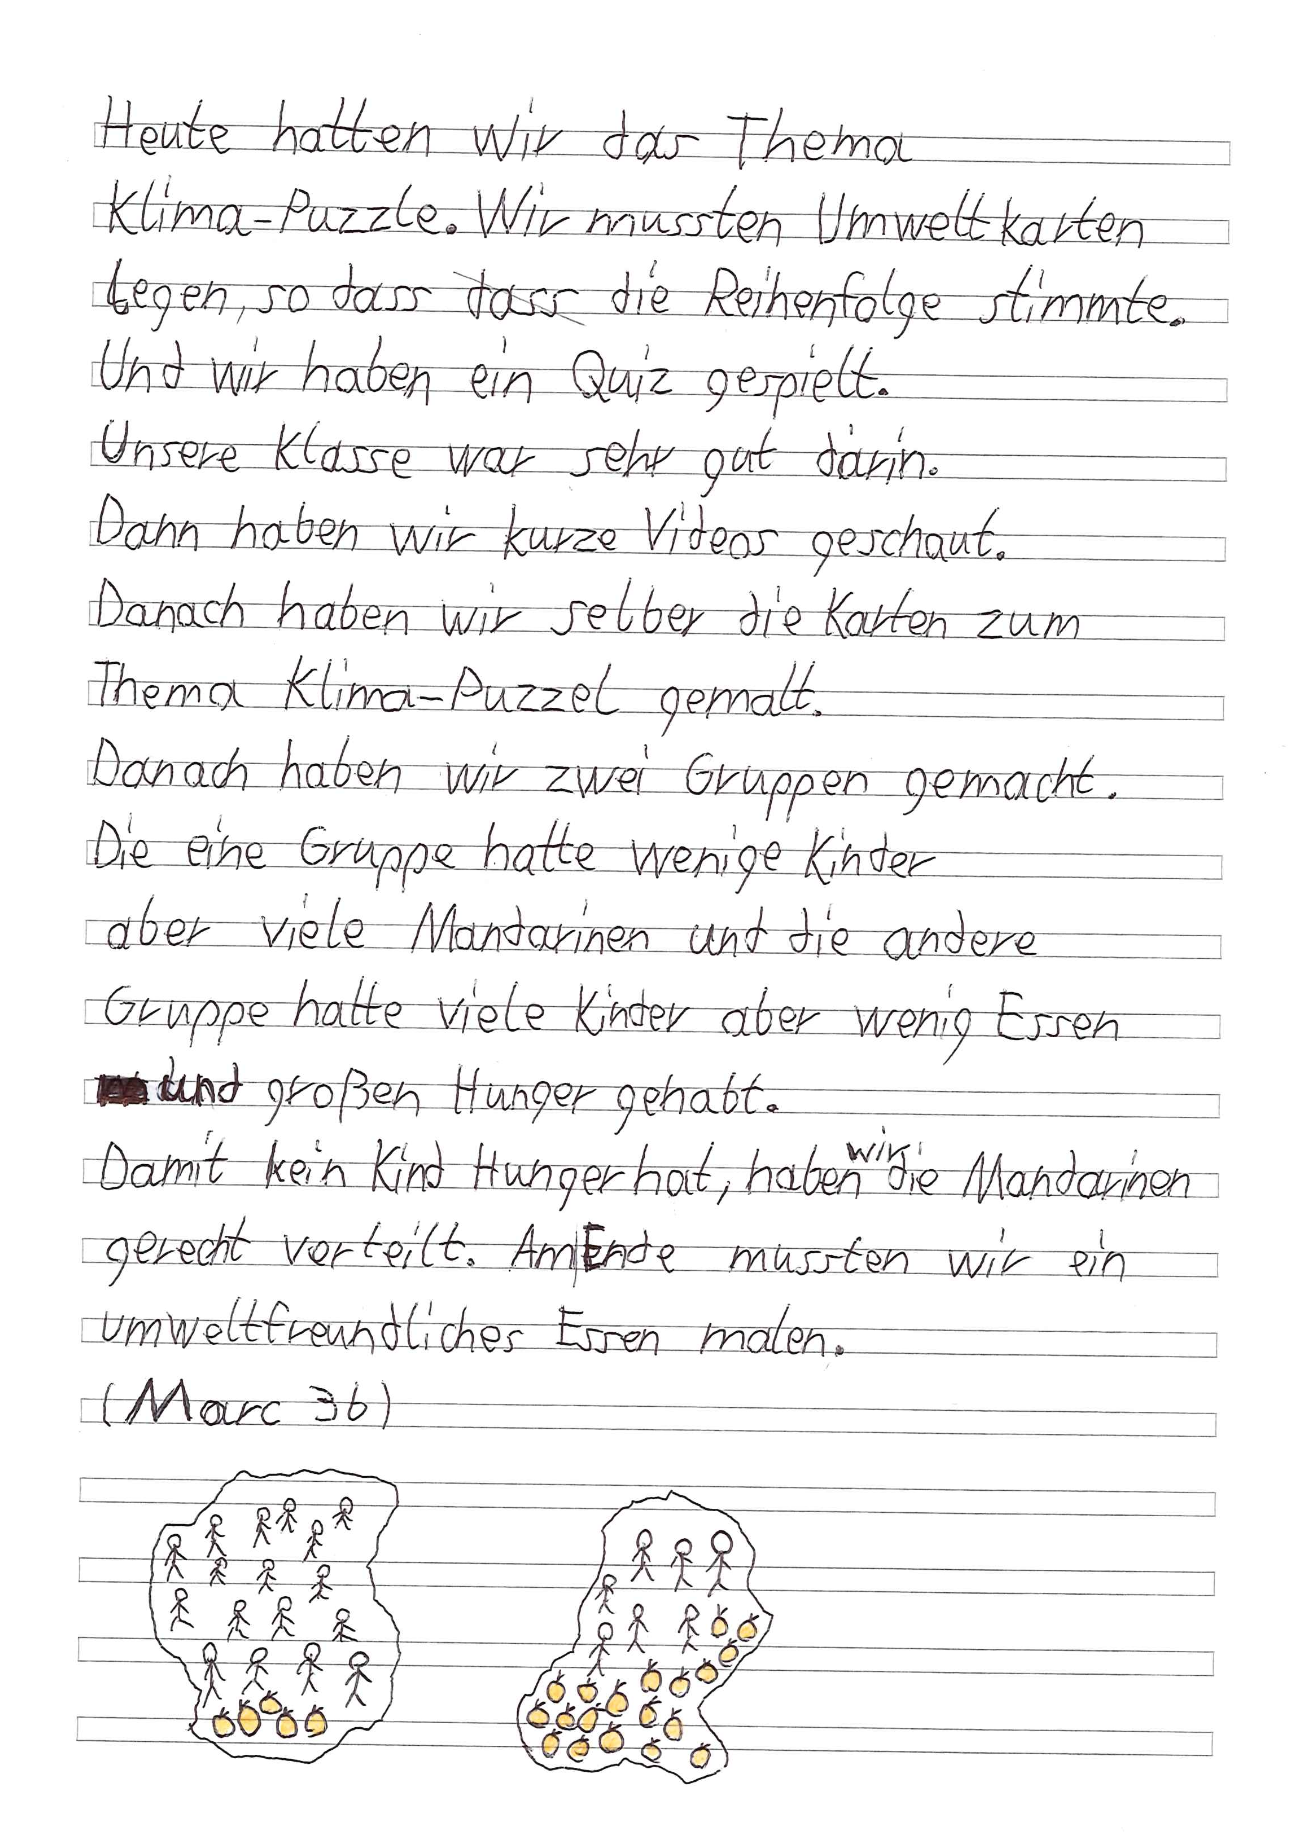 Heute hatten wir das Thema
Klima-Puzzle. Wir mussten Umweltkarten
legen, so dass dass die Reihenfolge stimmte.
Und wir haben ein Quiz gespielt.
Unsere Klasse war sehr gut darin.
Dann haben wir kurze Videos geschaut.
Danach haben wir selber die Karten zum
Thema Klima-Puzzel gemalt.
Danach haben wir zwei Gruppen gemacht.
Die eine Gruppe hatte wenige Kinder
aber viele Mandarinen und die andere
Gruppe hatte viele Kinder aber wenig Essen
und großen Hunger gehabt.
Damit kein Kind Hunger hat, haben wir die Mandarinen
gerecht verteilt. Am Ende mussten wir ein
umweltfreundliches Essen malen.
(Marc 3b)